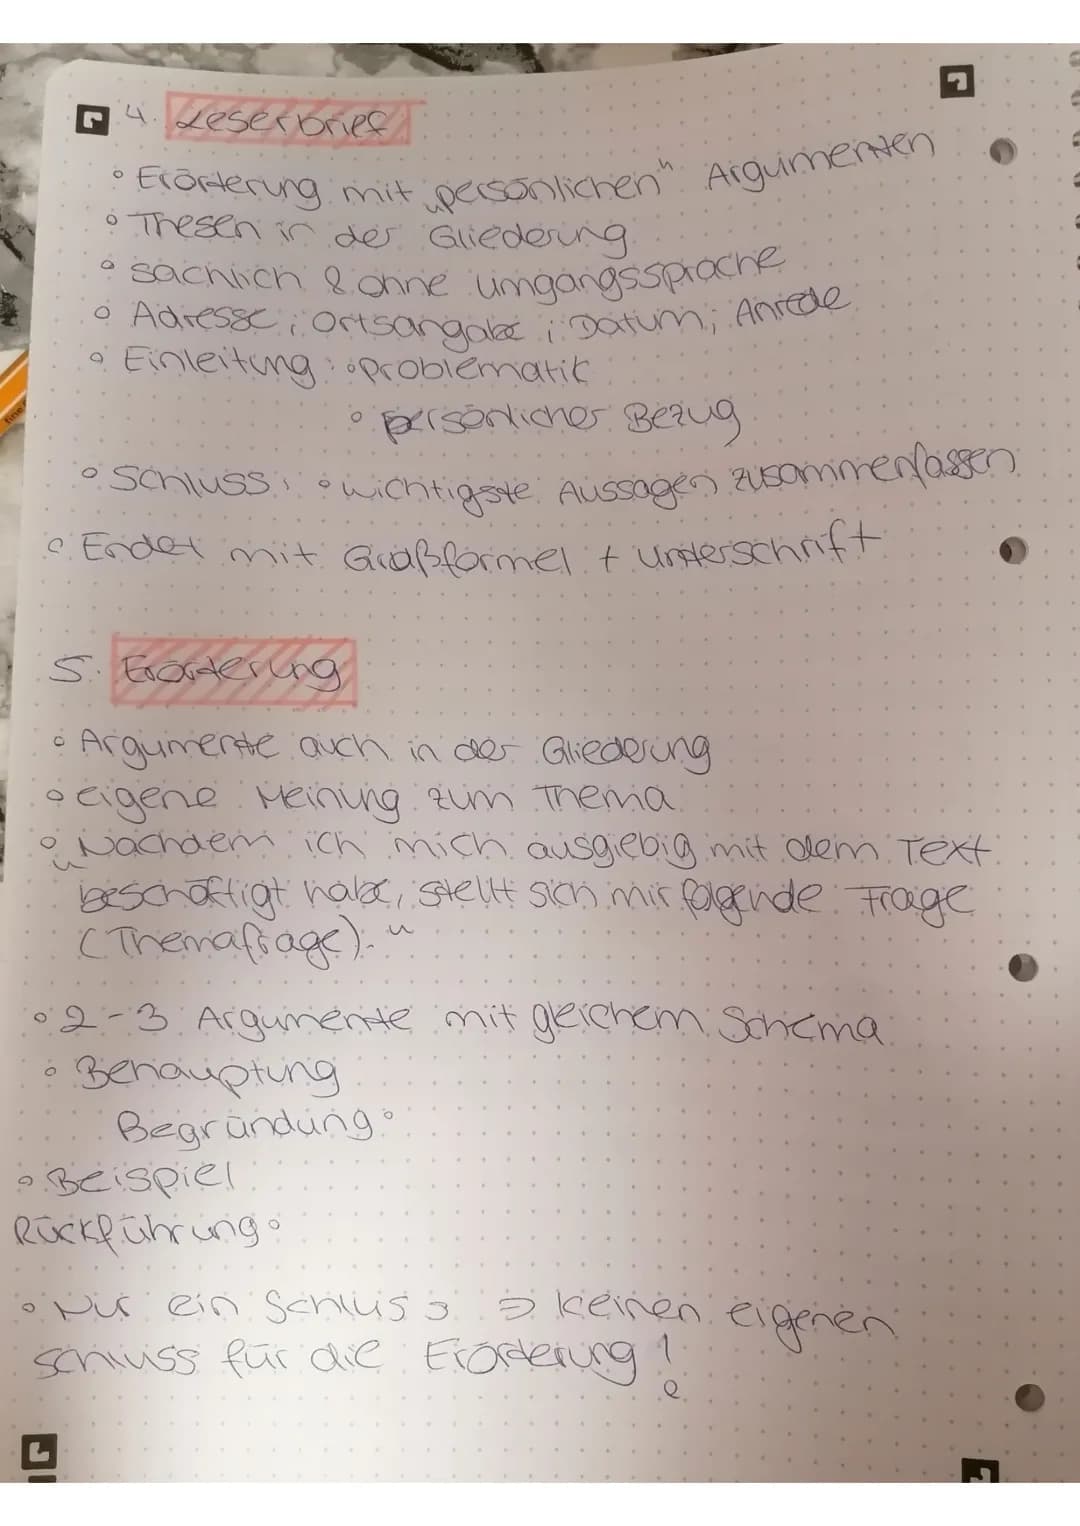 4. Leserbrief
° Erörterung mit „persönlichen" Argumenten
° Thesen in der Gliederung
° sachlich & ohne umgangssprache
° Adresse; Ortsangabe; Datum; Anrede
° Einleitung: °Problematik
° persönlicher Bezug
° Schluss: °wichtigste Aussagen zusammenfassen
° Endet mit Grußformel + unterschrift
5. Erörterung
° Argumente auch in der Gliederung
° eigene Meinung zum Thema
° „Nachdem ich mich ausgiebig mit dem Text
beschäftigt habe, stellt sich mir folgende Frage
(Themafrage): "
° 2-3 Argumente mit gleichem Schema
° Behauptung
Begründung °
° Beispiel
Rückführung °
° Nur ein Schluss => keinen eigenen
schluss für die Erörterung!